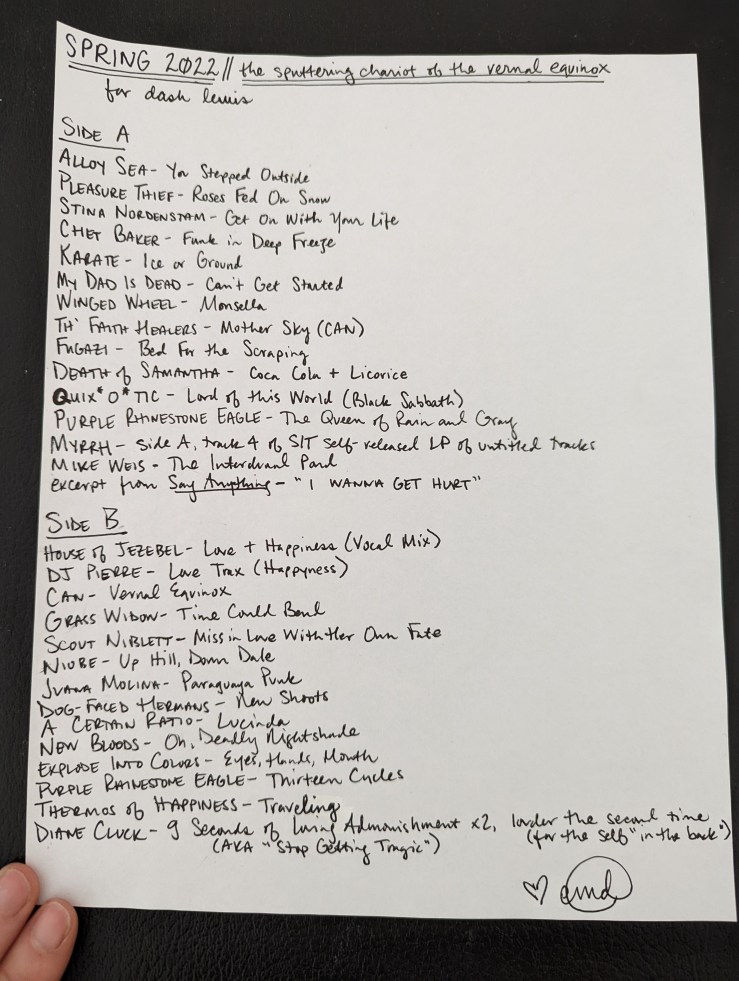 SPRING 2022 // the sputtering chariot of the vernal equinox
for dash lewis
SIDE A
ALLOY SEA - You Stepped Outside
PLEASURE THIEF - Roses Fed On Snow
STINA NORDENSTAM - Get On With Your Life
CHET BAKER - Funk in Deep Freeze
KARATE - Ice or Ground
MY DAD IS DEAD - Can't Get Started
WINGED WHEEL - Monsella
TH' FAITH HEALERS - Mother Sky (CAN)
FUGAZI - Bed For the Scraping
DEATH of SAMANTHA - Coca Cola + Licorice
QUIX*O*TIC - Lord of this World (Black Sabbath)
PURPLE RHINESTONE EAGLE - The Queen of Rain and Gray
MYRRH - Side A, track 4 of S/T self-released LP of untitled tracks
MIKE WEIS - The
excerpt from Say Anything - "I WANNA GET HURT"
SIDE B
HOUSE of JEZEBEL - Love + Happiness (Vocal Mix)
DJ PIERRE - Love Trax (Happyness)
CAN - Vernal Equinox
GRASS WIDOW - Time Could Bend
SCOUT NIBLETT - Miss in Love With Her Own Fate
NIOBE - Up Hill, Down Dale
JUANA MOLINA - Paraguaya Punk
DOG-FACED HERMANS - New Shoots
A CERTAIN RATIO - Lucinda
NEW BLOODS - Oh, Deadly Nightshade
EXPLODE INTO COLORS - Eyes, Hands, Mouth
PURPLE RHINESTONE EAGLE - Thirteen Cycles
THERMOS of HAPPINESS - Traveling
DIANE CLUCK - 9 Seconds of Loving Admonishment x2, louder the second time
(for the self "in the back")
(AKA "Stop Getting Tragic")
♡ amd